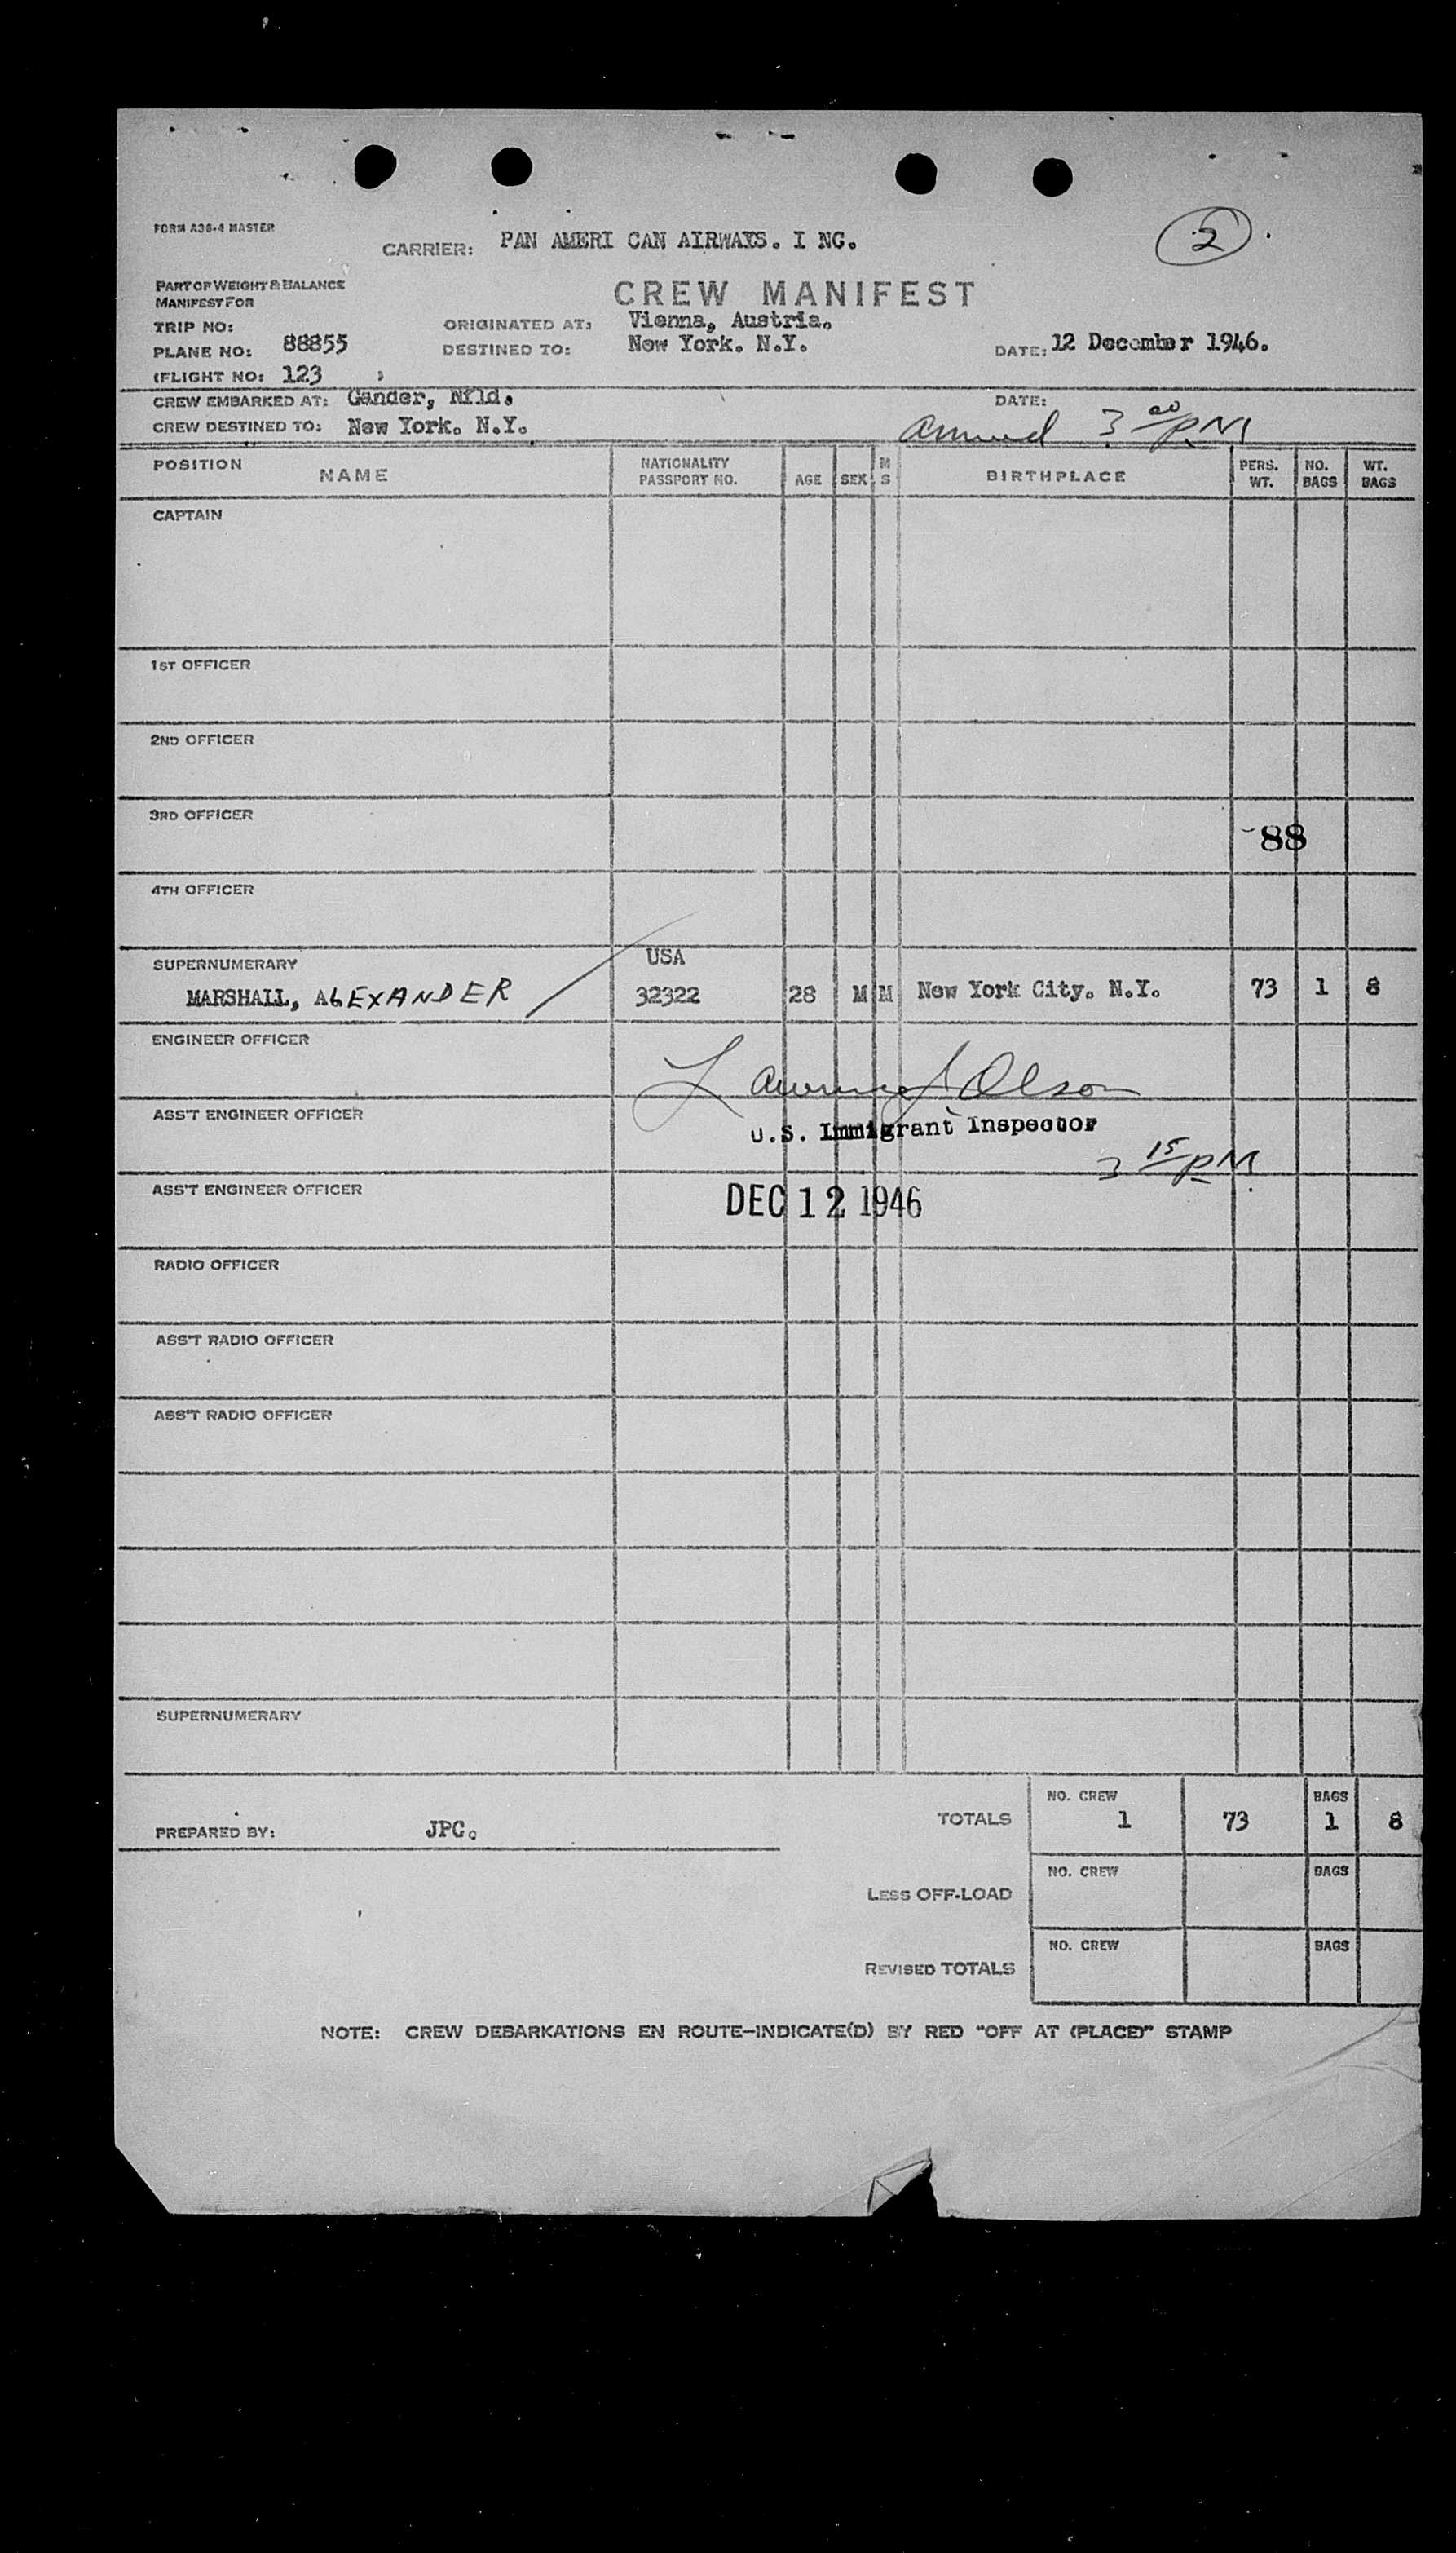 FORM A38-4 MASTER
CARRIER: PAN AMERI CAN AIRWAYS. I NC.
2
PART OF WEIGHT & BALANCE
MANIFEST FOR
CREW MANIFEST
TRIP NO:
ORIGINATED AT: Vienna, Austria.
PLANE NO: 88855
DESTINED TO: New York. N.Y.
DATE: 12 December 1946.
(FLIGHT NO: 123 )
CREW EMBARKED AT: Gander, Nfld.
DATE:
CREW DESTINED TO: New York. N.Y.
Arrived 3 00 PM
POSITION NAME NATIONALITY PASSPORT NO. AGE SEX M S BIRTHPLACE PERS. WT. NO. BAGS WT. BAGS
CAPTAIN
1ST OFFICER
2ND OFFICER
3RD OFFICER
88
4TH OFFICER
SUPERNUMERARY USA
MARSHALL, ALEXANDER 32322 28 M M New York City. N.Y. 73 1 8
ENGINEER OFFICER
Lawrence J Olson
ASS'T ENGINEER OFFICER
U.S. Immigrant Inspector
3 15 PM
ASS'T ENGINEER OFFICER
DEC 12 1946
RADIO OFFICER
ASS'T RADIO OFFICER
ASS'T RADIO OFFICER
SUPERNUMERARY
TOTALS NO. CREW 1 73 BAGS 1 8
PREPARED BY: JPC.
LESS OFF-LOAD NO. CREW BAGS
REVISED TOTALS NO. CREW BAGS
NOTE: CREW DEBARKATIONS EN ROUTE-INDICATE(D) BY RED "OFF AT (PLACE)" STAMP